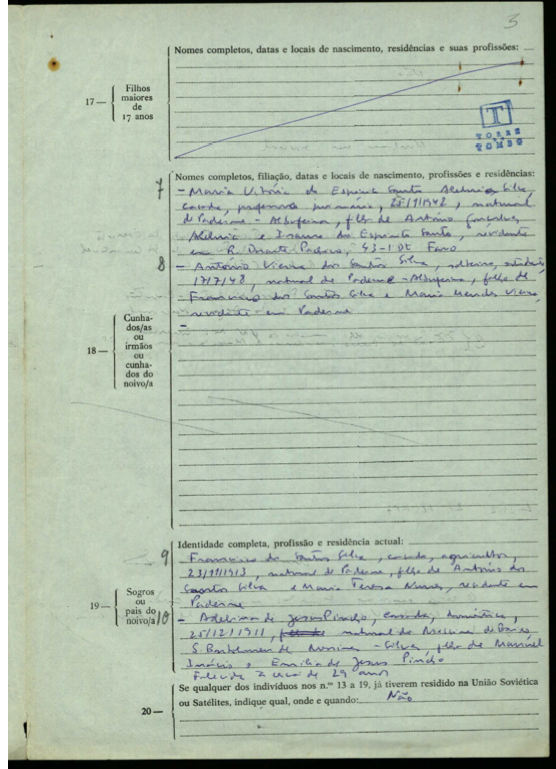 3
Nomes completos, datas e locais de nascimento, residências e suas profissões:
17 — Filhos
maiores
de
17 anos
T
TORRE
TOMBO
Nomes completos, filiação, datas e locais de nascimento, profissões e residências:
7
- Maria Vitória do Espírito Santo Silva,
casada, professora primária, 25/1/1942, natural
de Paderne - Albufeira, fª de António Gonçalves
e do Espírito Santo, residente
em R. Duarte Pacheco, 43-1 Dt Faro
8 - António Vieira dos Santos Silva, solteiro,
17/7/48, natural de Paderne - Albufeira, filho de
- Francisco dos Santos Silva e Maria Mendes Vieira,
residente em Paderne
-
18 — Cunha-
dos/as
ou
irmãos
ou
cunha-
dos do
noivo/a
Identidade completa, profissão e residência actual:
9
- Francisco dos Santos Silva, casado, agricultor,
23/11/1913, natural de Paderne, filho de António dos
Santos Silva e Maria Teresa Nunes, residente em
Paderne
19 — Sogros
ou
pais do
noivo/a
10 - Adelina de Jesus Pincho, casada, doméstica,
25/12/1911, natural de Messines de Baixo,
S. Bartolomeu de Messines - Silves, filha de Manuel
Inácio e Emília de Jesus Pincho
Falecida há cerca de 29 anos
Se qualquer dos indivíduos nos n.ºˢ 13 a 19, já tiverem residido na União Soviética
20 — ou Satélites, indique qual, onde e quando: Não